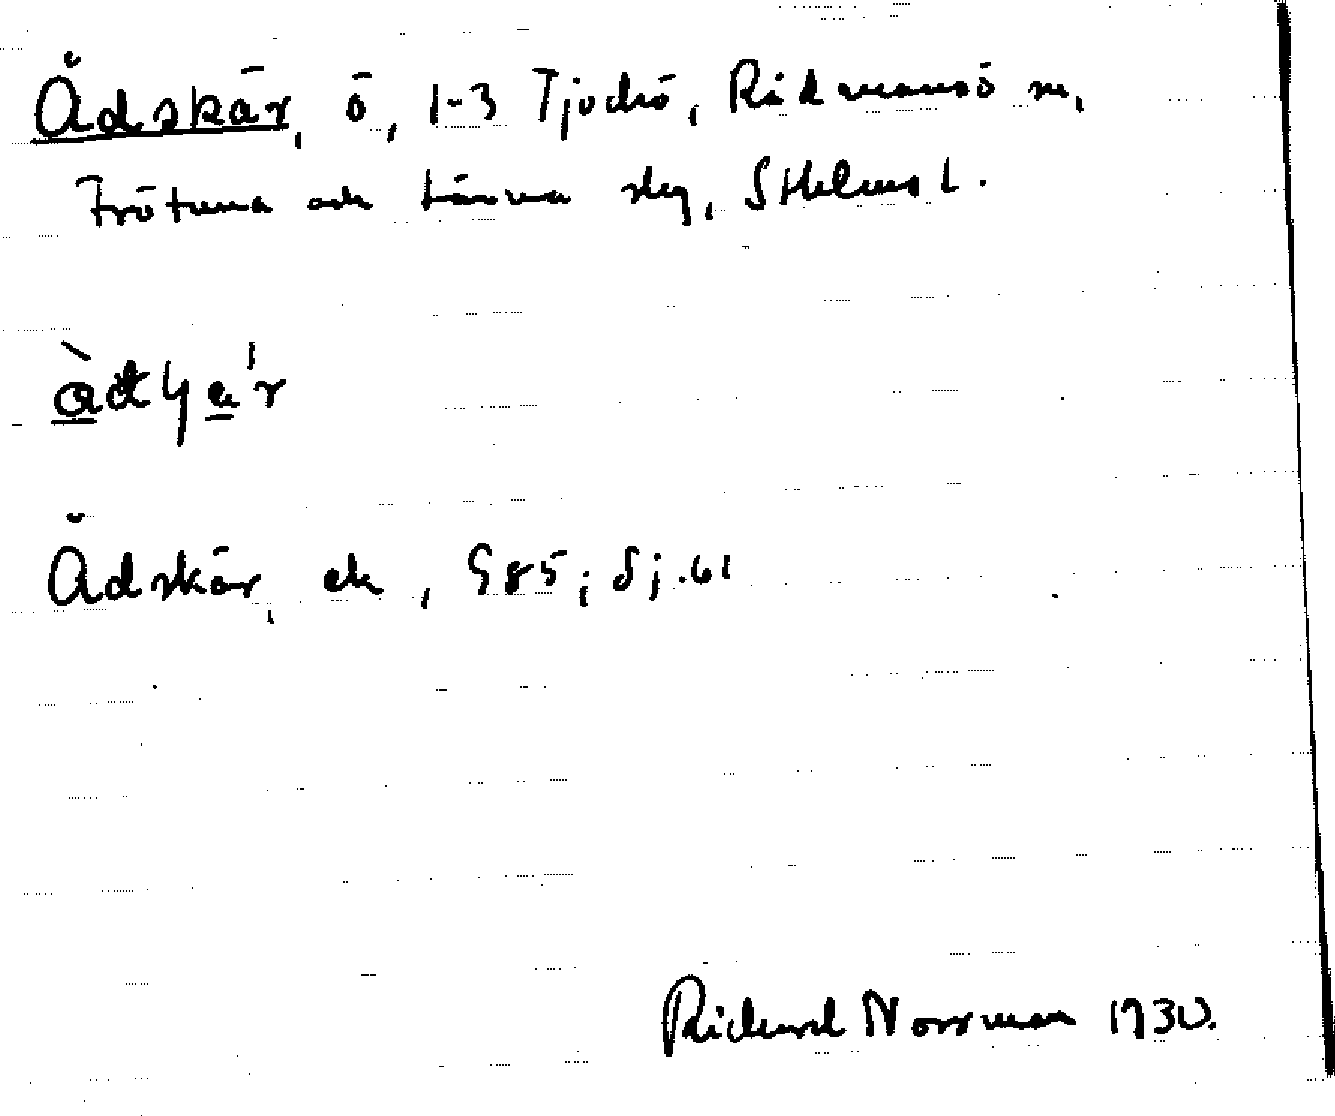 Ådskär, ö, 1-3 Tjockö, Rådmansö sn,
Frötuna och Länna slg, Sthlms l.
Ådskär, ek, S85; Sj.61
Rickard Norrman 1930.